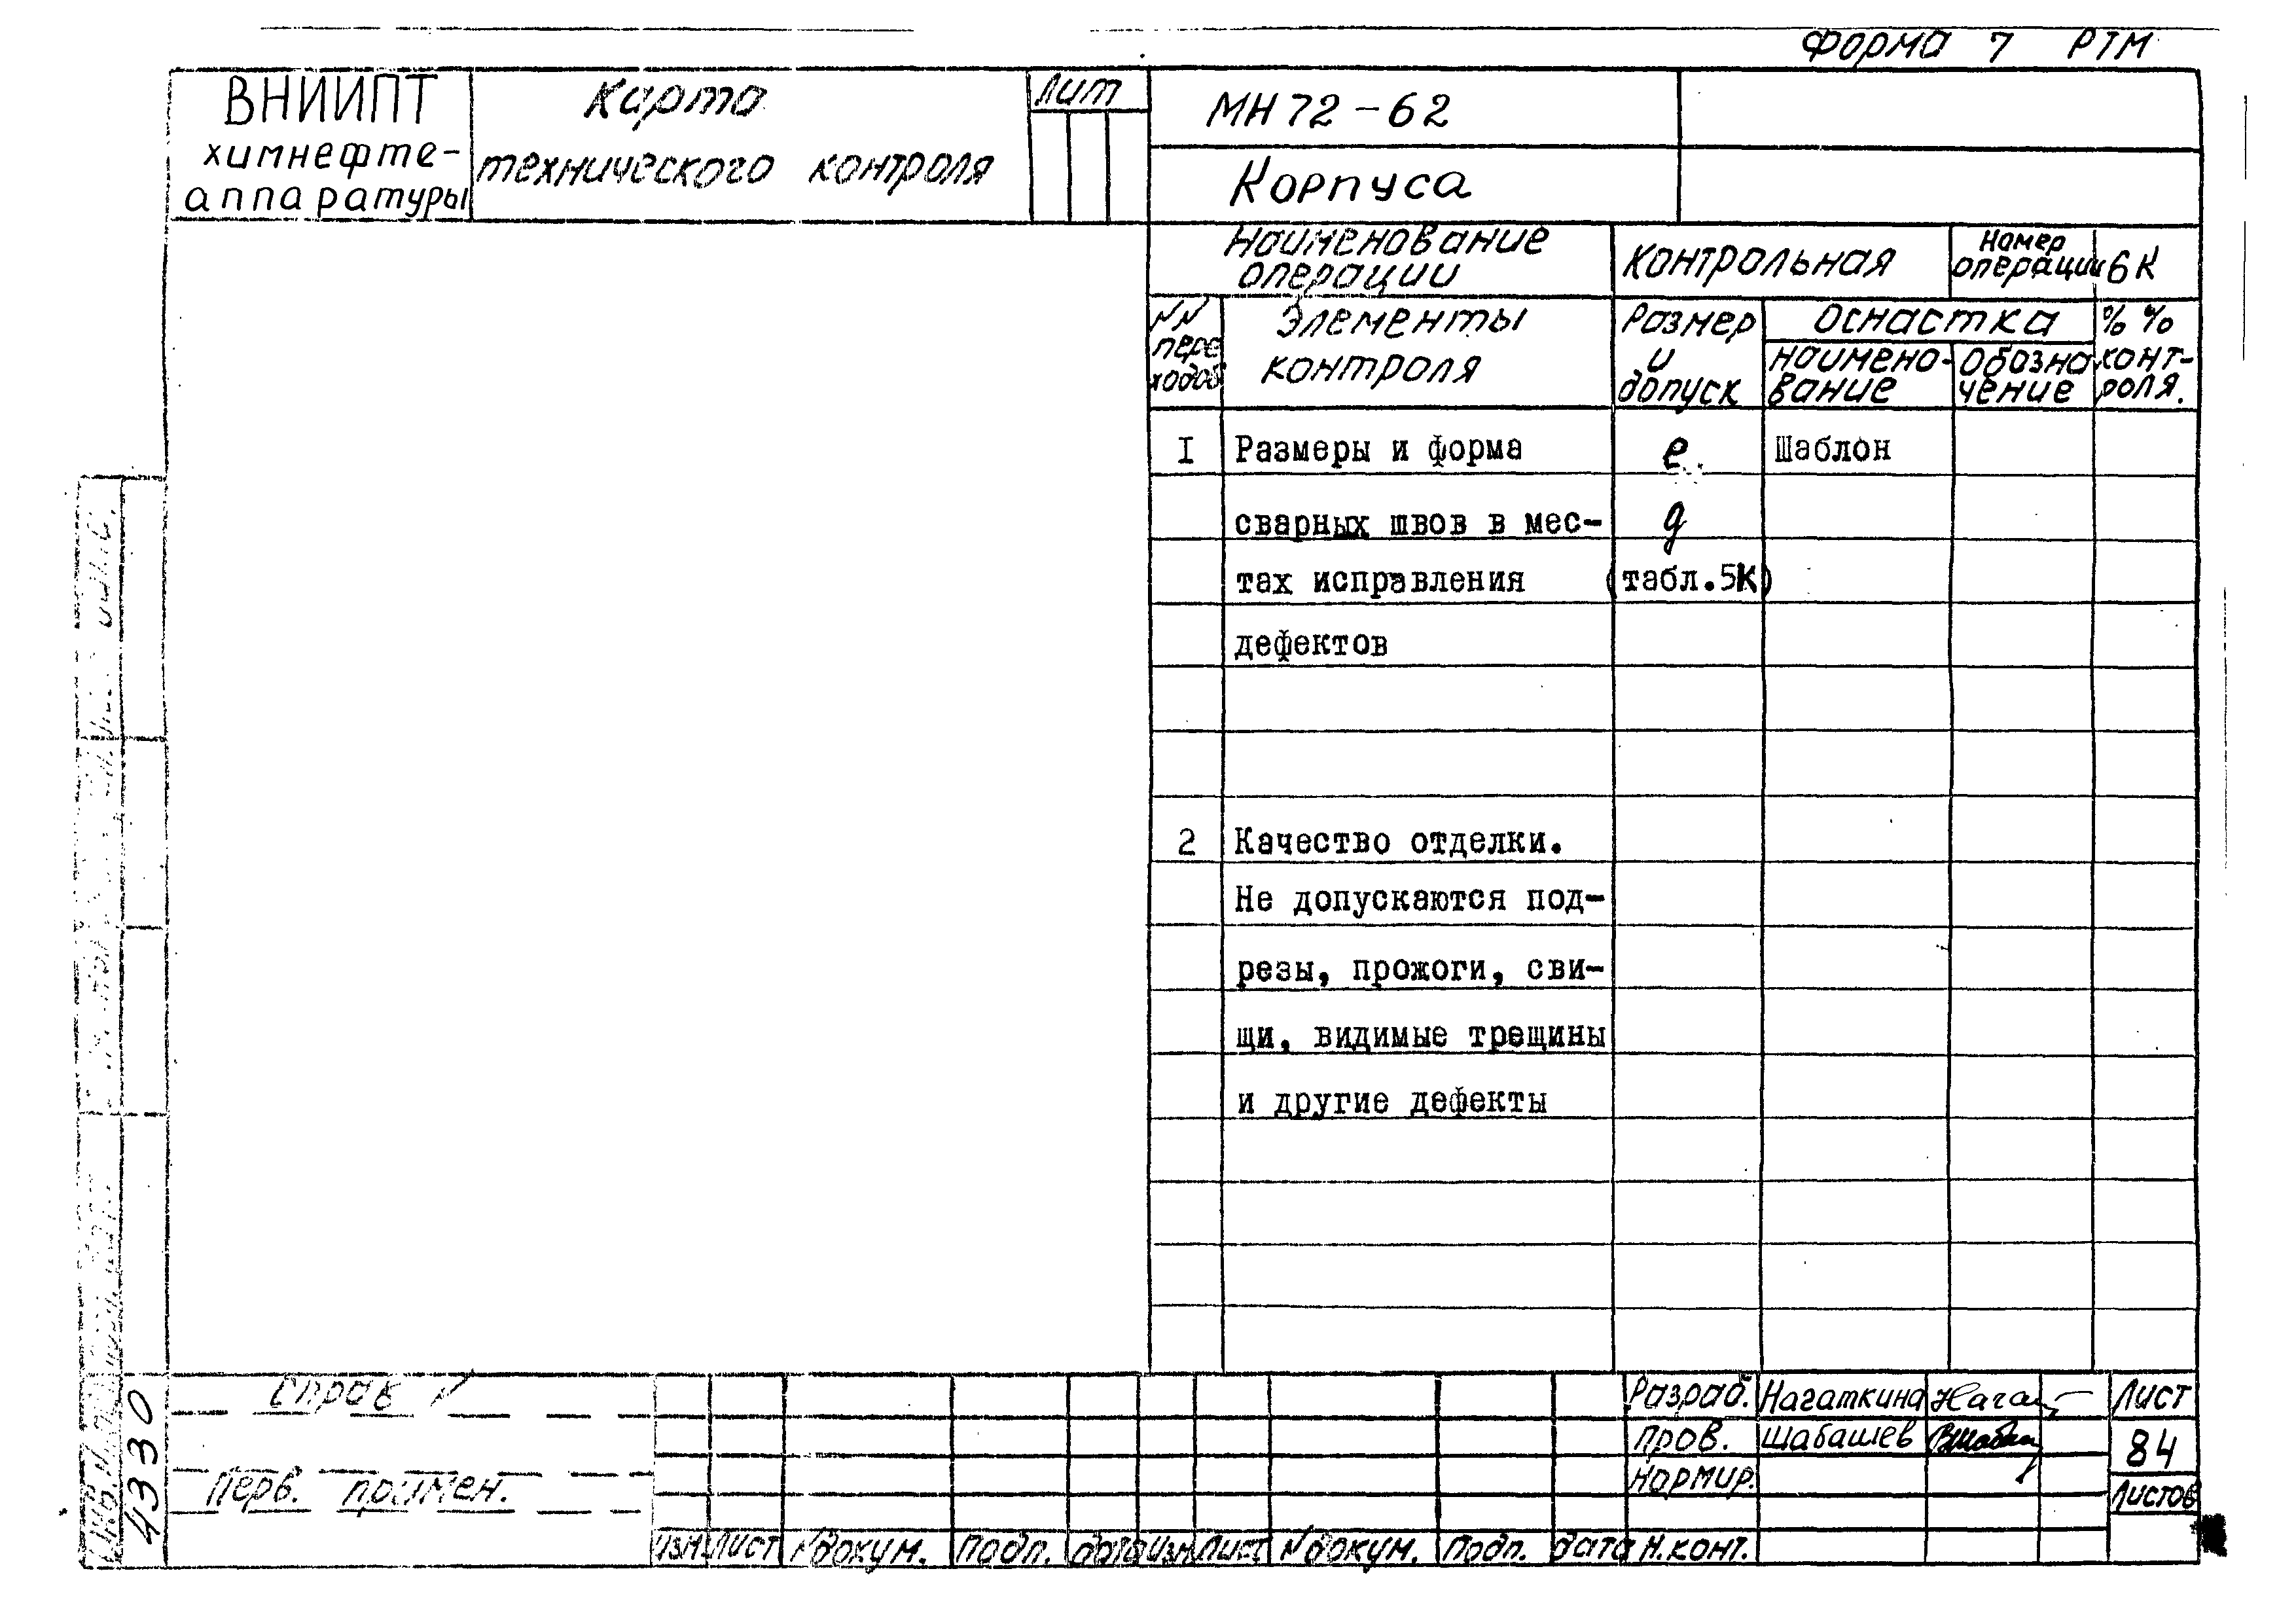 Форма 7 РТМ
ВНИИПТ
химнефте-
аппаратуры
Карта
технического контроля
Лит
МН 72-62
Корпуса
Наименование
операции
контрольная
Номер
операции
6К
№№
пере
ходов
Элементы
контроля
Размер
и
допуск
Оснастка
наимено-
вание
Обозна
чение
% %
конт-
роля.
I Размеры и форма е Шаблон
сварных швов в мес- g
тах исправления (табл.5К)
дефектов
2 Качество отделки.
Не допускаются под-
резы, прожоги, сви-
щи, видимые трещины
и другие дефекты
Справ №
Перв. примен.
Инв. №
4330
Разраб. Нагаткина
Пров. Шабашев
Нормир.
Н.конт.
Лист
84
Листов
Изм Лист № докум. Подп. Дата Изм Лист № докум. Подп. Дата